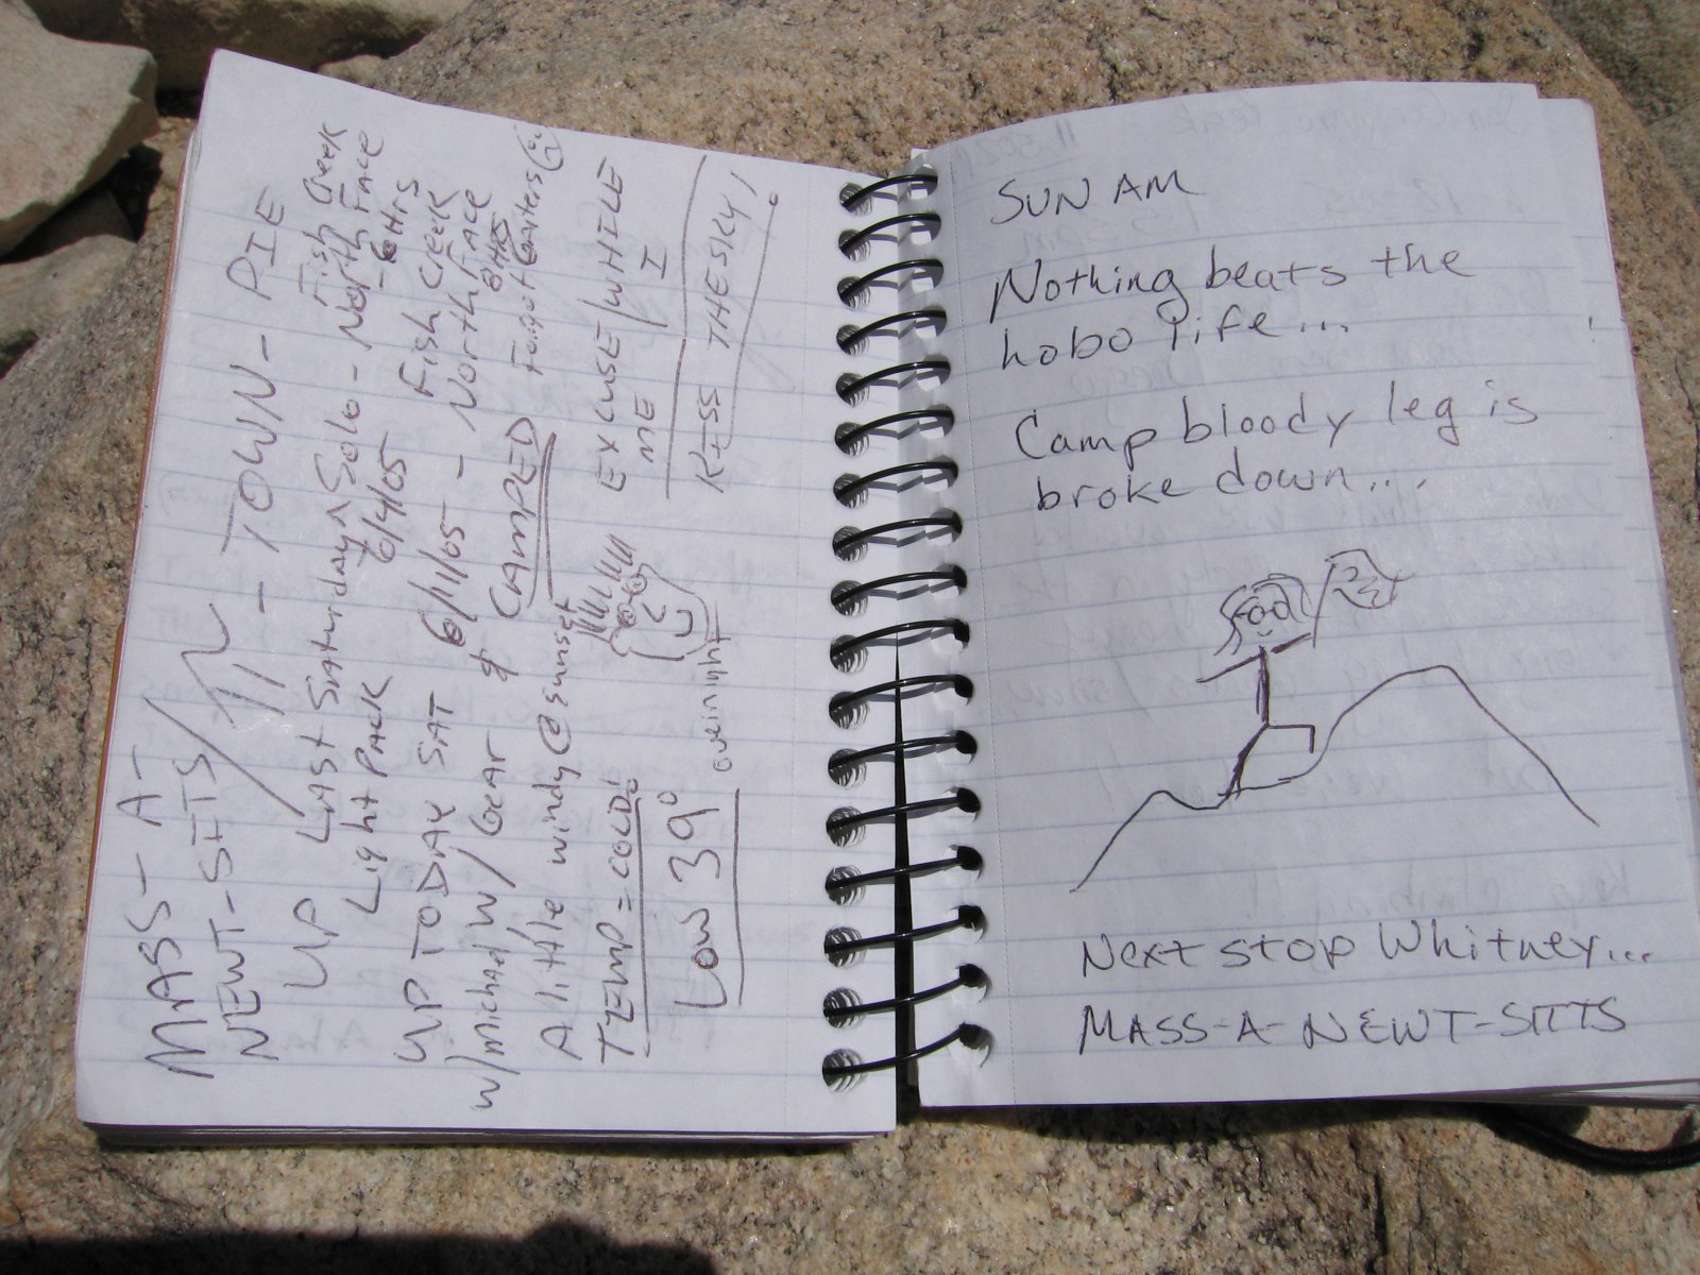 MASS-A-
NEWT-SITS / - TOWN-PIE
UP LAST Saturday ^ Solo - Fish Creek
Light Pack 6/4/05 North Face
6 Hrs
UP TODAY SAT 6/11/05 - Fish Creek
w/michael w/ Gear & North Face
CAMPED 8 HRS
Forgot Gaiters
A little windy @ sunset
TEMP = COLD!
Low 39° overnight
EXCUSE / WHILE
ME / I
KISS THE SKY!
SUN AM
Nothing beats the
hobo life...
Camp bloody leg is
broke down...
Next stop Whitney...
MASS-A-NEWT-SITTS